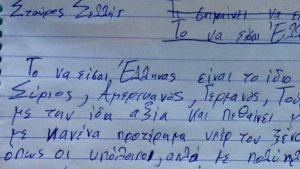 Σταύρος Σελλής
Τι σημαίνει να εί
Το να είσαι Ελλ
Το να είσαι Έλληνας είναι το ίδιο
Σύριος, Αμερικανός, Γερμανός, Τού
με την ίδια αξία και πεθαίνει μ
με κανένα προτέρημα υπέρ του ξένο
όπως οι υπόλοιποι, αλλά με